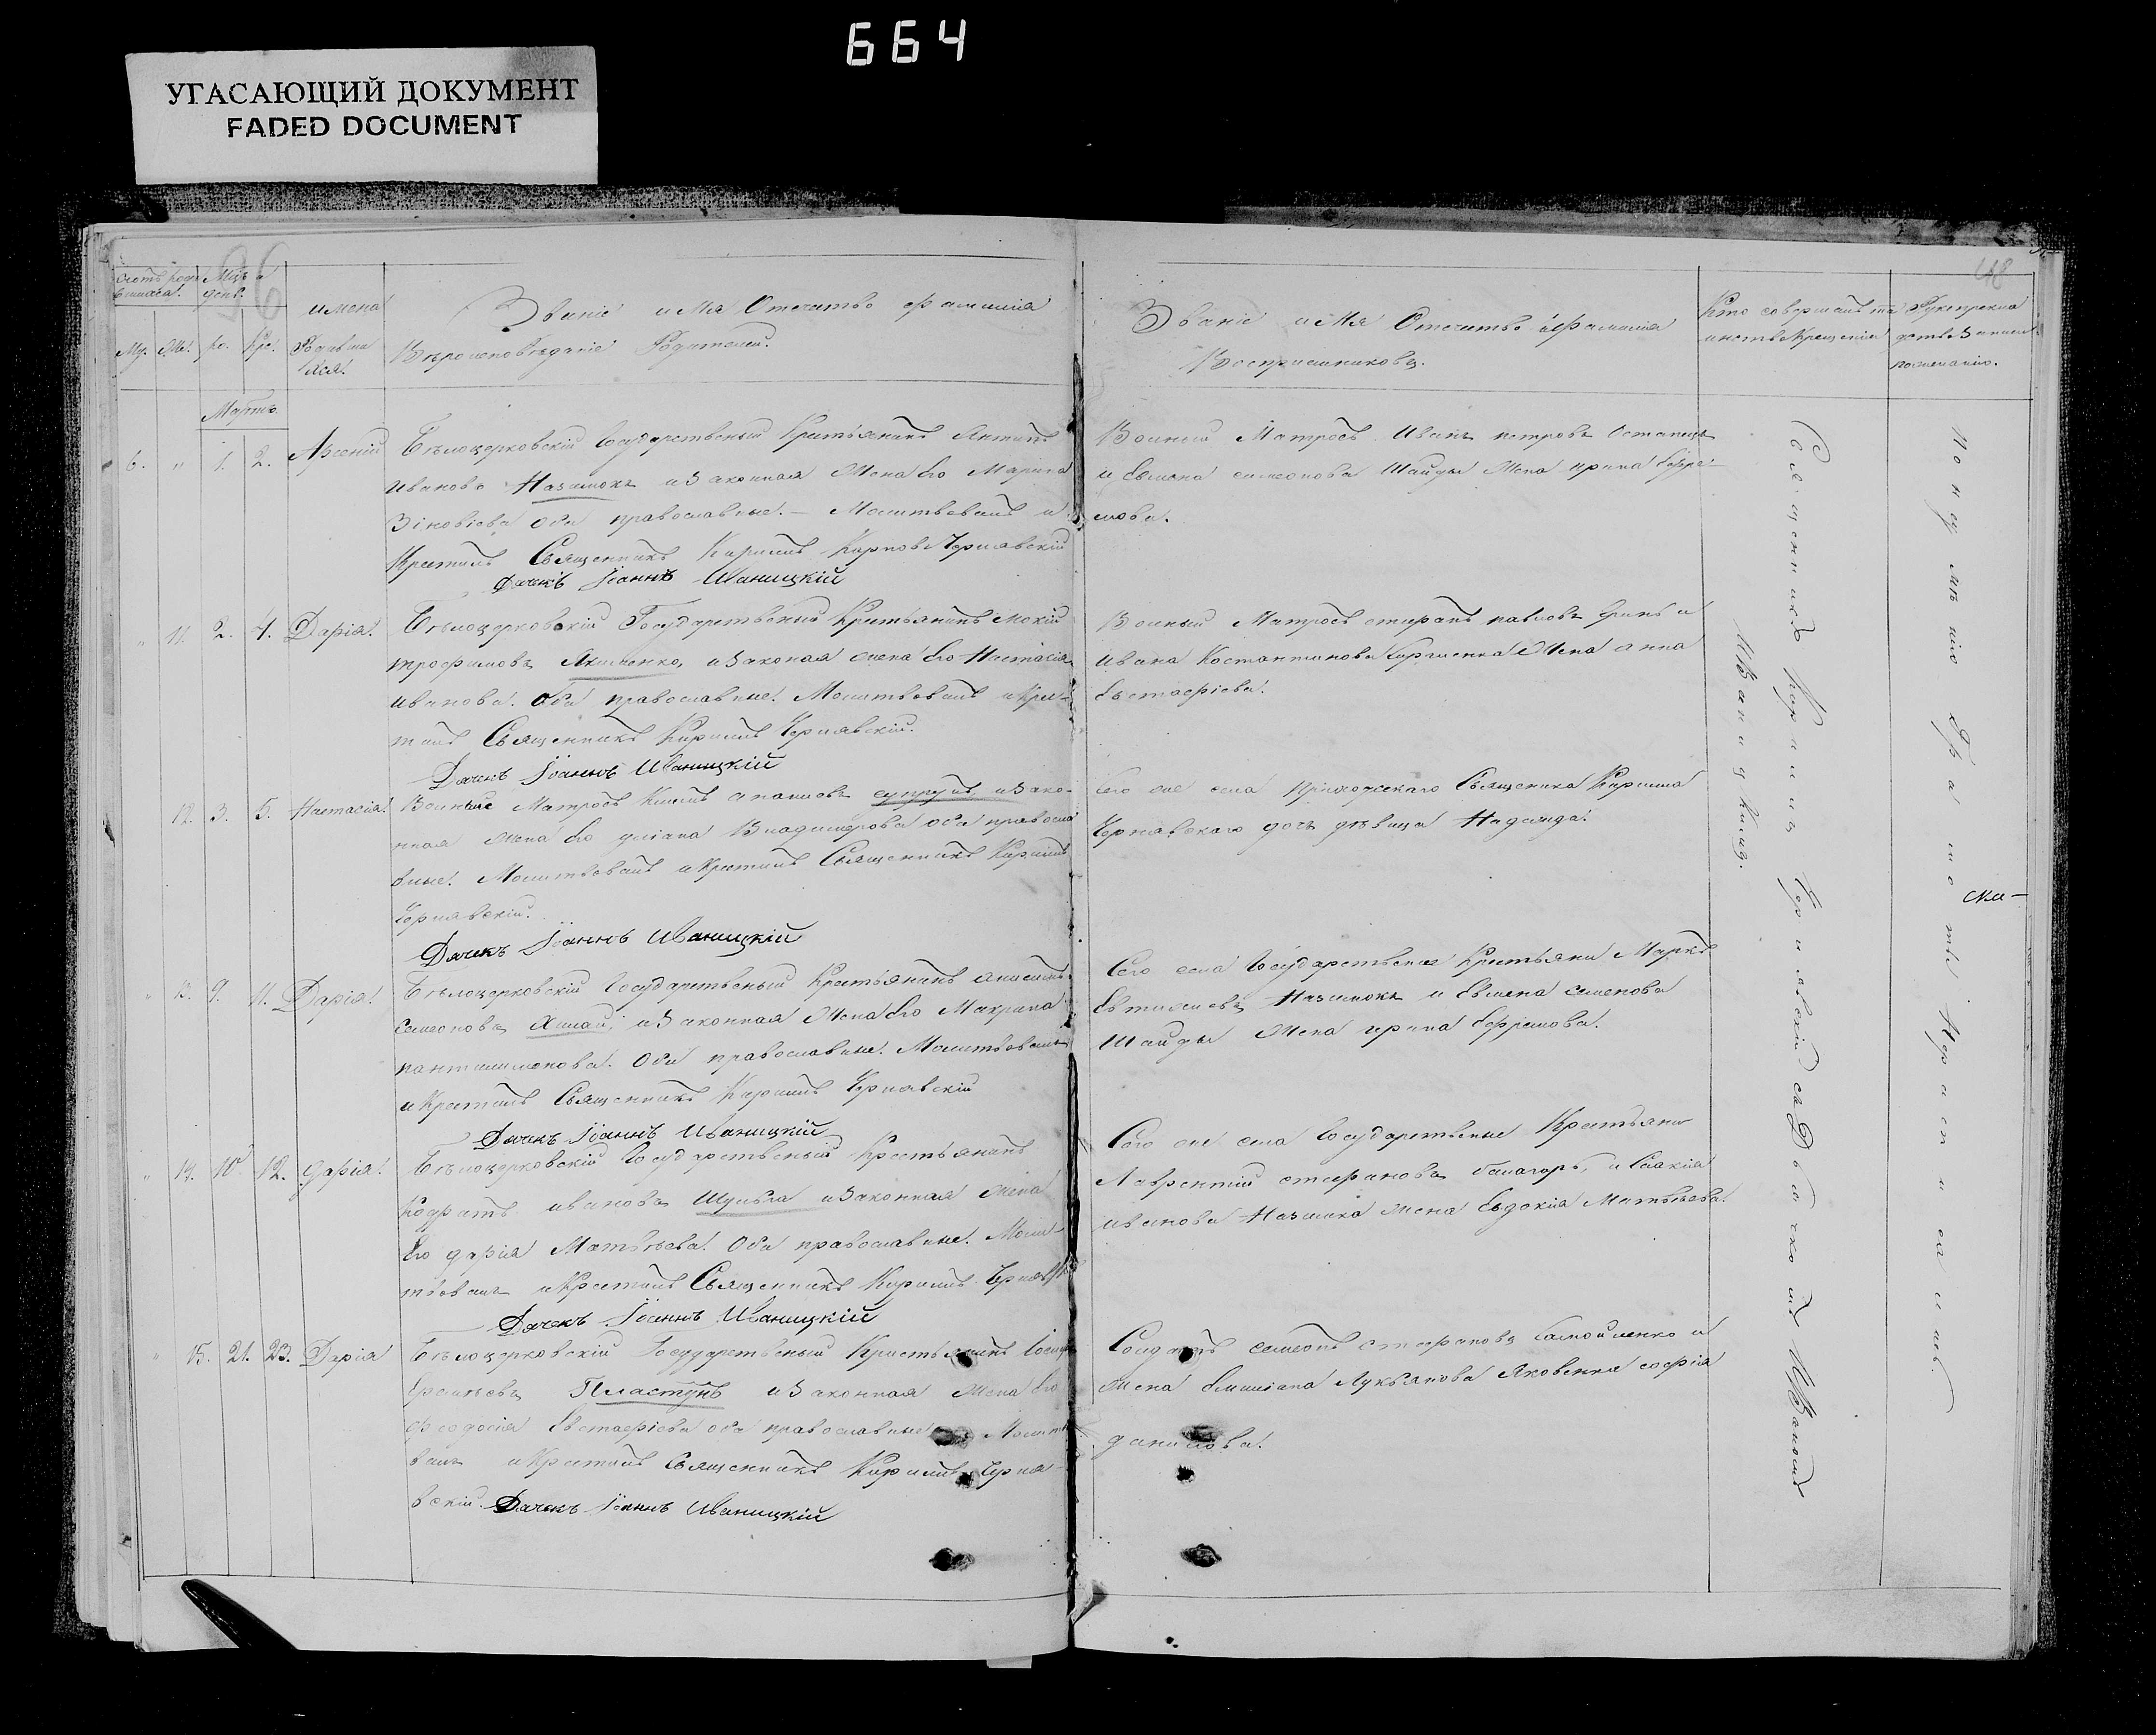 664
УГАСАЮЩИЙ ДОКУМЕНТ
FADED DOCUMENT
96
48
Счотъ роди Мцъ и
вшихся. день.
Му. Же. ро. Кре.
имена
Родивши
хся.
Званіе имя Отечество фамилія
Вѣроисповѣданіе Родителей.
Званіе имя Отечество и Фамилія
Воспріемниковъ.
Кто совершалъ та
инство Крещенія
Мартъ
6. " 1. 2. Арсеній
Бѣлоцерковскій Государственый Крестьянинъ Антипъ
Ивановъ Назимокъ изаконная Жена Его Марина
Зіновіева Оба православные. — Молитвовалъ и
Крестилъ Священникъ Кирилъ Карпов Чернявскій
Дячекъ Іоаннъ Иваницкій
Воиный Матросъ Иванъ петровъ Остапецъ
и Евмена симеонова Шайды Жена ирина Ефре-
мова.
" 11. 2. 4. Дарія.
Бѣлоцерковскій Государственый Крестьянинъ Мокій
трофимовъ Якименко, изаконая жена Его Настасія
иванова. Оба православные. Молитвовалъ и Кре-
тилъ Священникъ Кирилъ Чернявскій.
Дячекъ Іоаннъ Иваницкій
Воиный Матросъ стефанъ павловъ и
Ивана Костантинова Жена анна
Евстафіева.
12. 3. 5. Настасія.
Воиные Матросъ супрунъ, изако-
нная Жена Его уліяна Владимерова оба правосла
вные. Молитвовалъ и Крестилъ Священникъ Кирилъ
Чернявскій.
Дячекъ Іоаннъ Иваницкій
Сего же села приходскаго Священика Кирилла
Чернявскаго дочь дѣвица Надежда.
" 13. 9. 11. Дарія.
Бѣлоцерковскій Государственый Крестьянинъ анисимъ
семеоновъ изаконная Жена Его Макрина
пантилимонова. Оба православные. Молитвовалъ
и Крестилъ Священникъ Кирилъ Чернявскій
Дячекъ Іоаннъ Иваницкій
Сего села Государственые Крестьяни Марко
Евтихіевъ Назимокъ и Евмена семенова
Шайды Жена ирина Ефремова.
" 14. 10 12. дарія.
Бѣлоцерковскій Государственый Крестьянинъ
Кодратъ ивановъ Шульга изаконная жена
Его дарія Матвѣева. Оба православные. Моли
твовалъ и Крестилъ Священникъ Кирилъ Чернявскій
Дячекъ Іоаннъ Иваницкій
Сего же села Государственые Крестьяни
Лаврентій стефановъ и Саакія
иванова Назимка жена Евдокія Матвѣева.
" 15. 21. 23. Дарія
Бѣлоцерковскій Государственый Крестьянинъ
Пластунъ изаконная Жена Его
феодосія Евстафіева оба православные Молитво
валъ и Крестилъ Священникъ Кирилъ Черня-
вскій. Дячекъ Іоаннъ Иваницкій
Солдатъ семеонъ стефановъ Самойленко и
Жена Лукьянова Яковенка софія
данилова.
Священникъ Кирилъ Чернявскій съ Дьячкомъ Іваномъ
Иваницкимъ.
По не умѣнію Грамотѣ
ска-